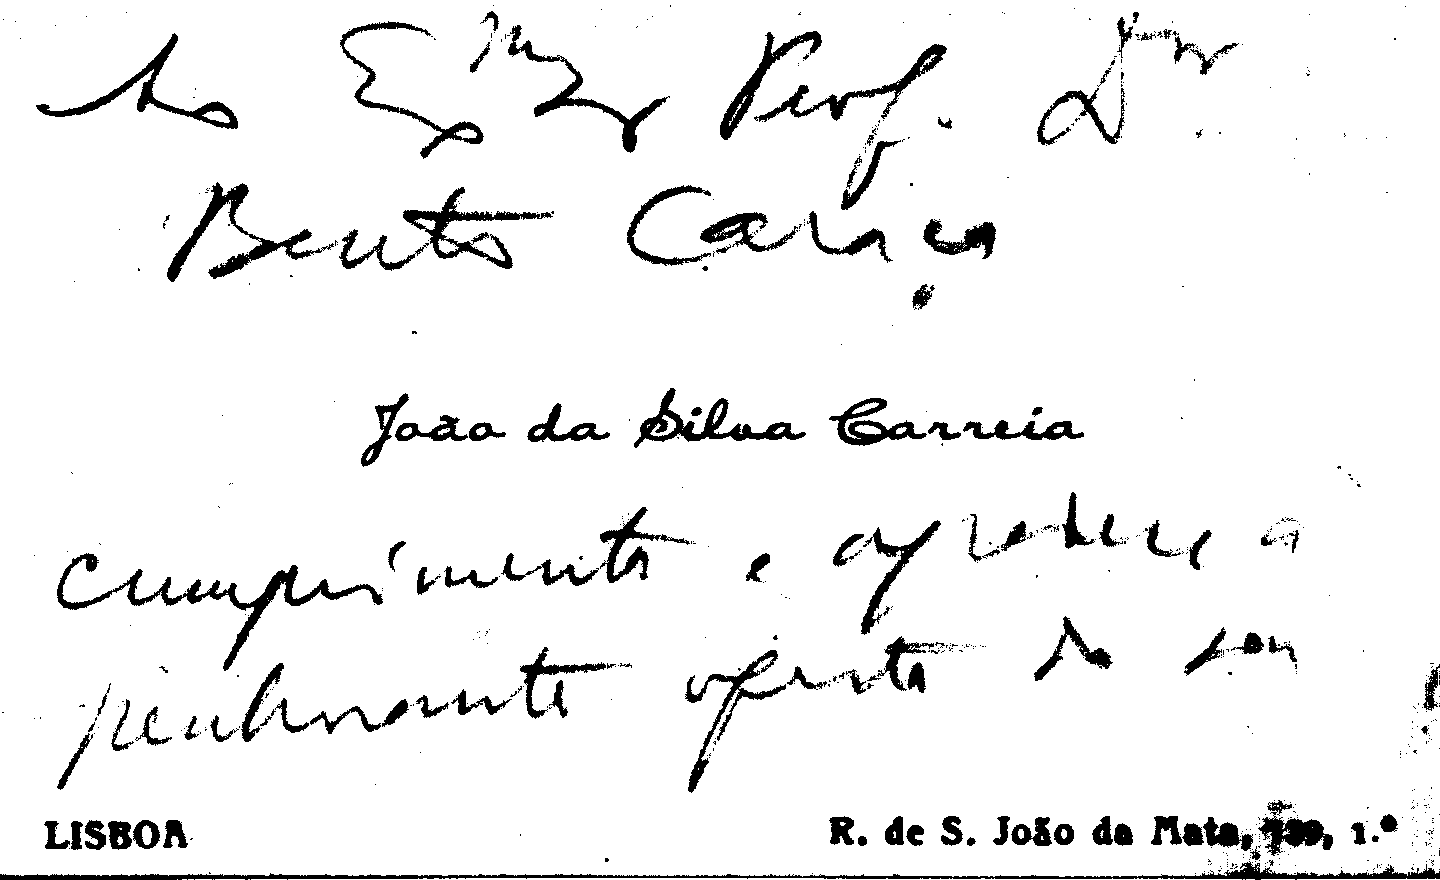 Ao Exmo Sr Prof. Dr
Bento Caraça
João da Silva Correia
cumprimenta e agradece a
penhorante oferta do seu
LISBOA R. de S. João da Mata, 139, 1.º